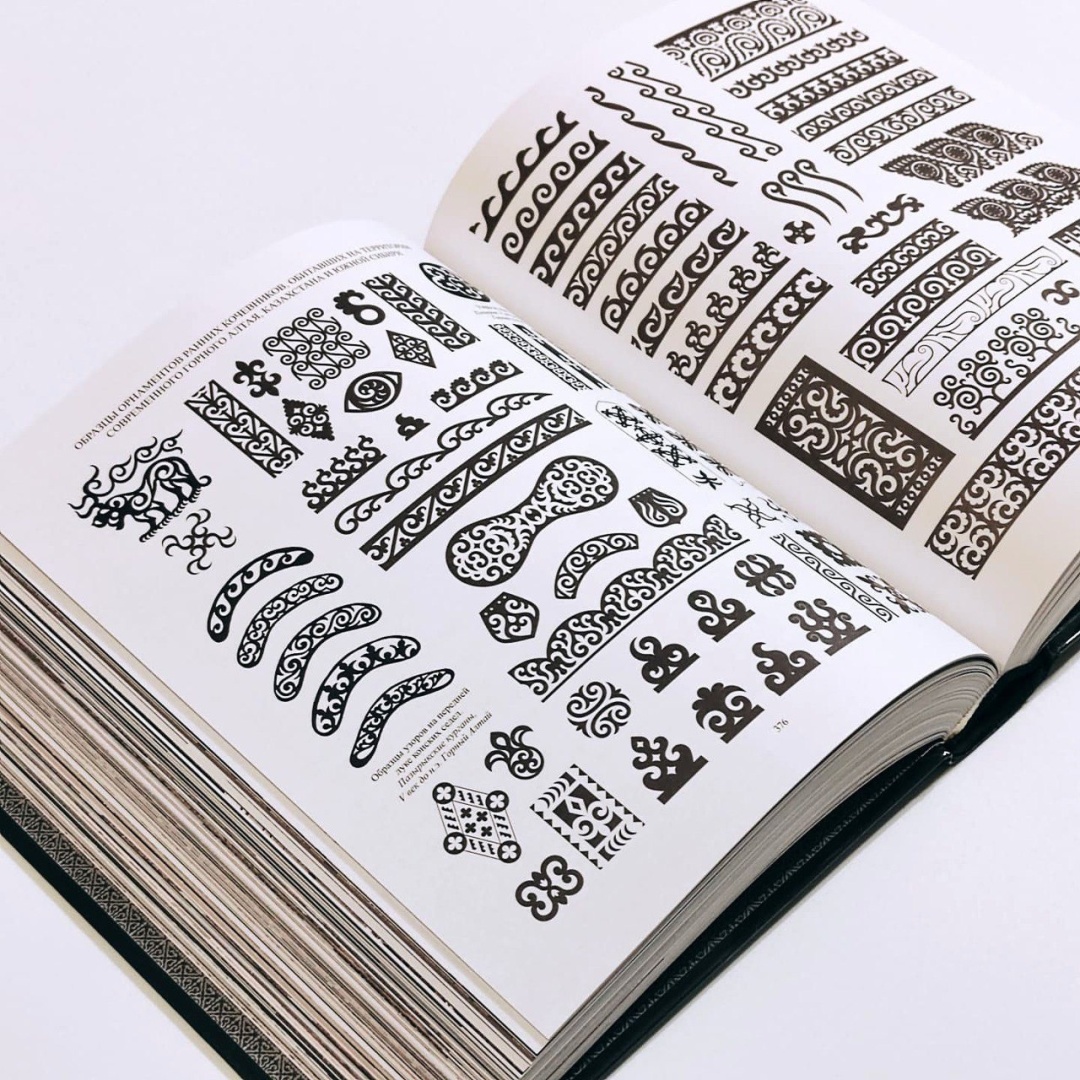 ОБРАЗЦЫ ОРНАМЕНТОВ РАННИХ КОЧЕВНИКОВ, ОБИТАВШИХ НА ТЕРРИТОРИИ
СОВРЕМЕННОГО ГОРНОГО АЛТАЯ, КАЗАХСТАНА И ЮЖНОЙ СИБИРИ
Образцы узоров на передней
луке конских седел.
Пазырыкские курганы.
V век до н.э. Горный Алтай
376